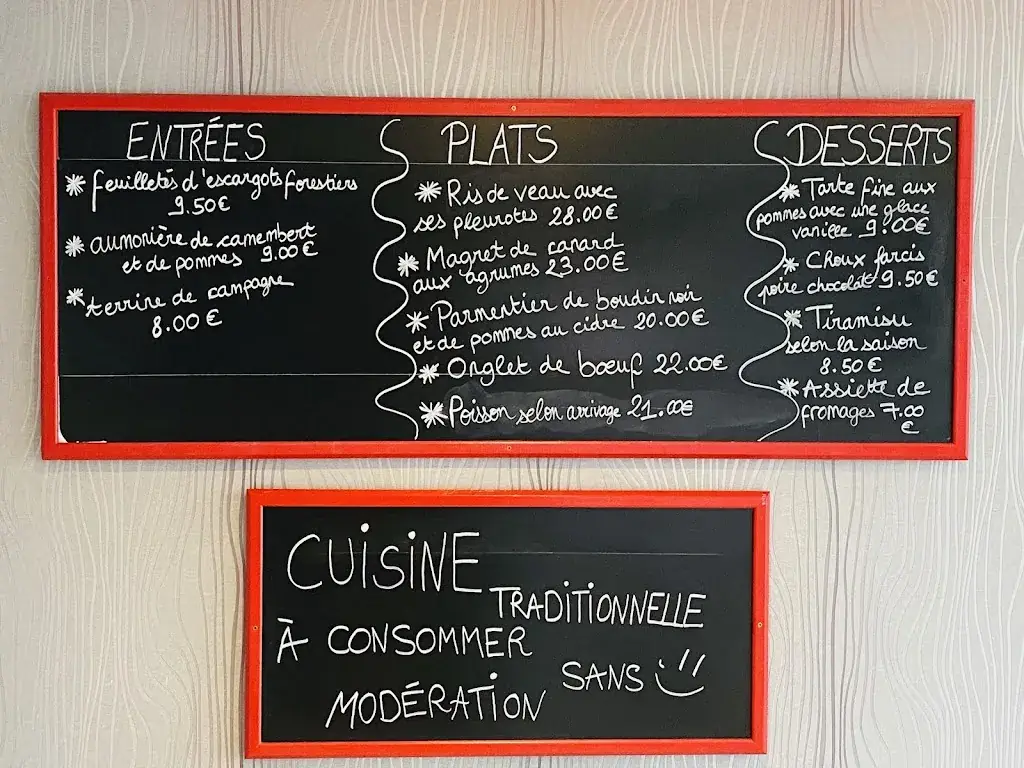 ENTRÉES
* feuilletés d'escargots forestiers
9.50€
* aumonière de camembert
et de pommes 9.00€
* terrine de campagne
8.00€
PLATS
* Ris de veau avec
ses pleurotes 28.00€
* Magret de canard
aux agrumes 23.00€
* Parmentier de boudin noir
et de pommes au cidre 20.00€
* Onglet de bœuf 22.00€
* Poisson selon arrivage 21.00€
DESSERTS
* Tarte fine aux
pommes avec une glace
vanille 9.00€
* Choux farcis
poire chocolat 9.50€
* Tiramisu
selon la saison
8.50€
* Assiette de
fromages 7.00
€
CUISINE
TRADITIONNELLE
À CONSOMMER
SANS
MODÉRATION